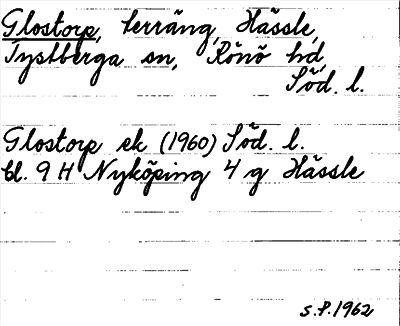 Glostorp, terräng, Hässle,
Tystberga sn, Rönö hd,
Söd. l.
Glostorp ek (1960) Söd. l.
bl. 9 H Nyköping 4 g Hässle
S.P. 1962